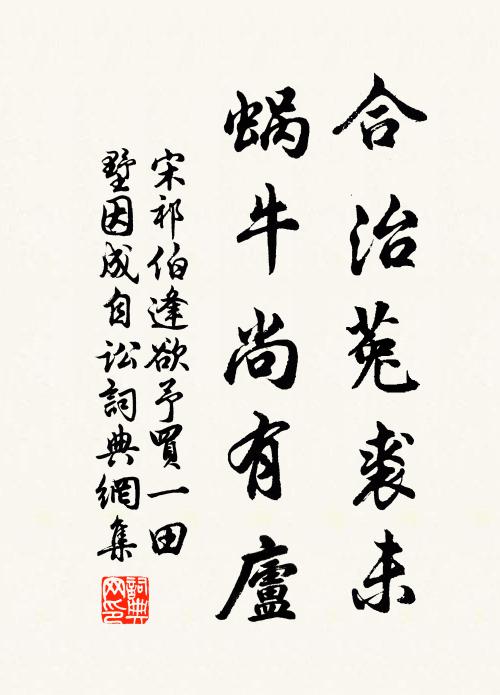 合治菟裘未
蜗牛尚有廬
宋祁伯逢欲予買一田
墅因成自訟詞典網集
詞典
网印